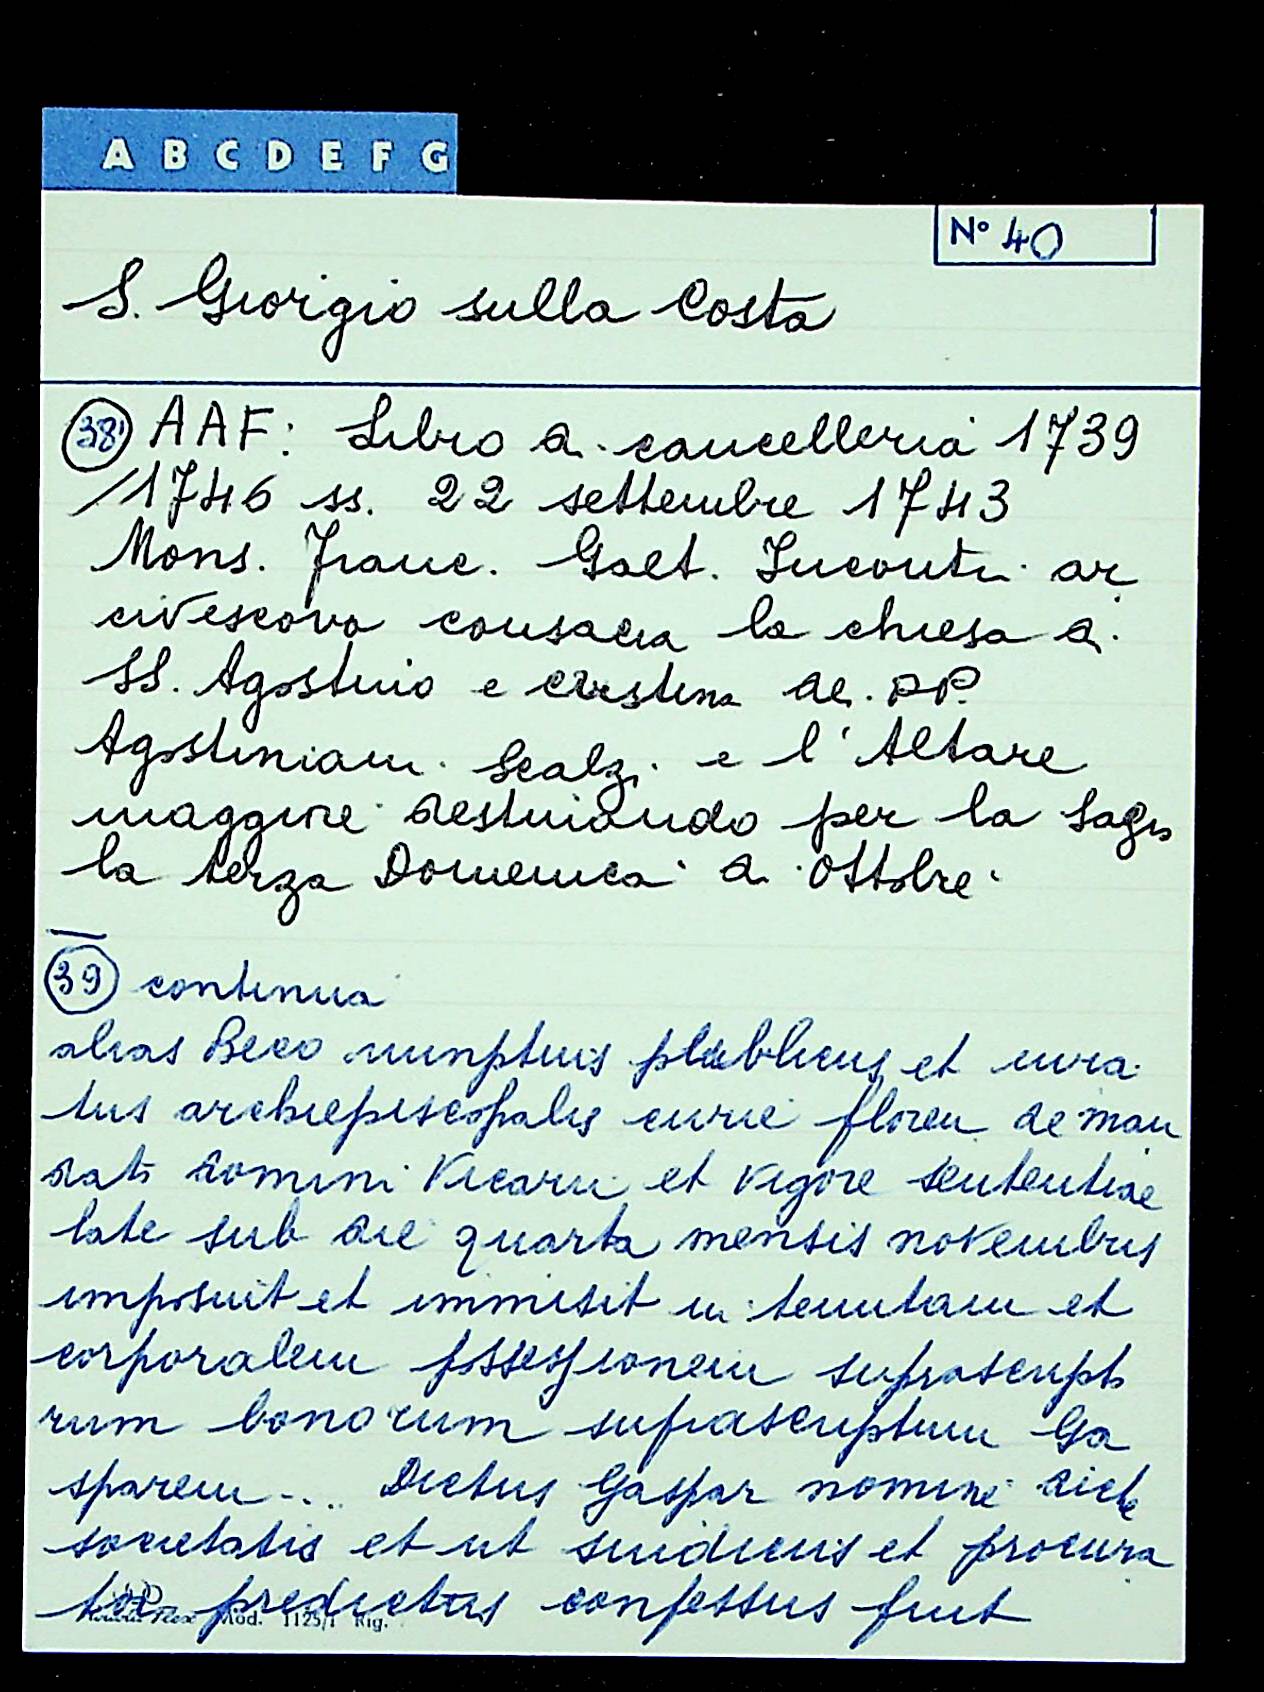 A B C D E F G
N° 40
S. Giorgio sulla Costa
38 AAF: Libro di cancelleria 1739
/1746 ss. 22 settembre 1743
Mons. Franc. Gaet. Incontri ar
civescovo consacra la chiesa di
SS. Agostino e Cristina de. PP.
Agostiniani Scalzi e l'Altare
maggiore destinando per la Sagra
la terza Domenica di Ottobre
39 continua
alias Beco nunptius publicus et iura
tus archiepiscopalis curie floren. de man
dato domini Vicarii et vigore sententiae
late sub die quarta mensis novembris
imposuit et immisit in tenutam et
corporalem possessionem suprascripto
rum bonorum suprascriptum Ga
sparem .... Dictus Gaspar nomine dicte
societatis et ut sindicus et procura
tor predictus confessus fuit
Mod. 1125/1 Rig.